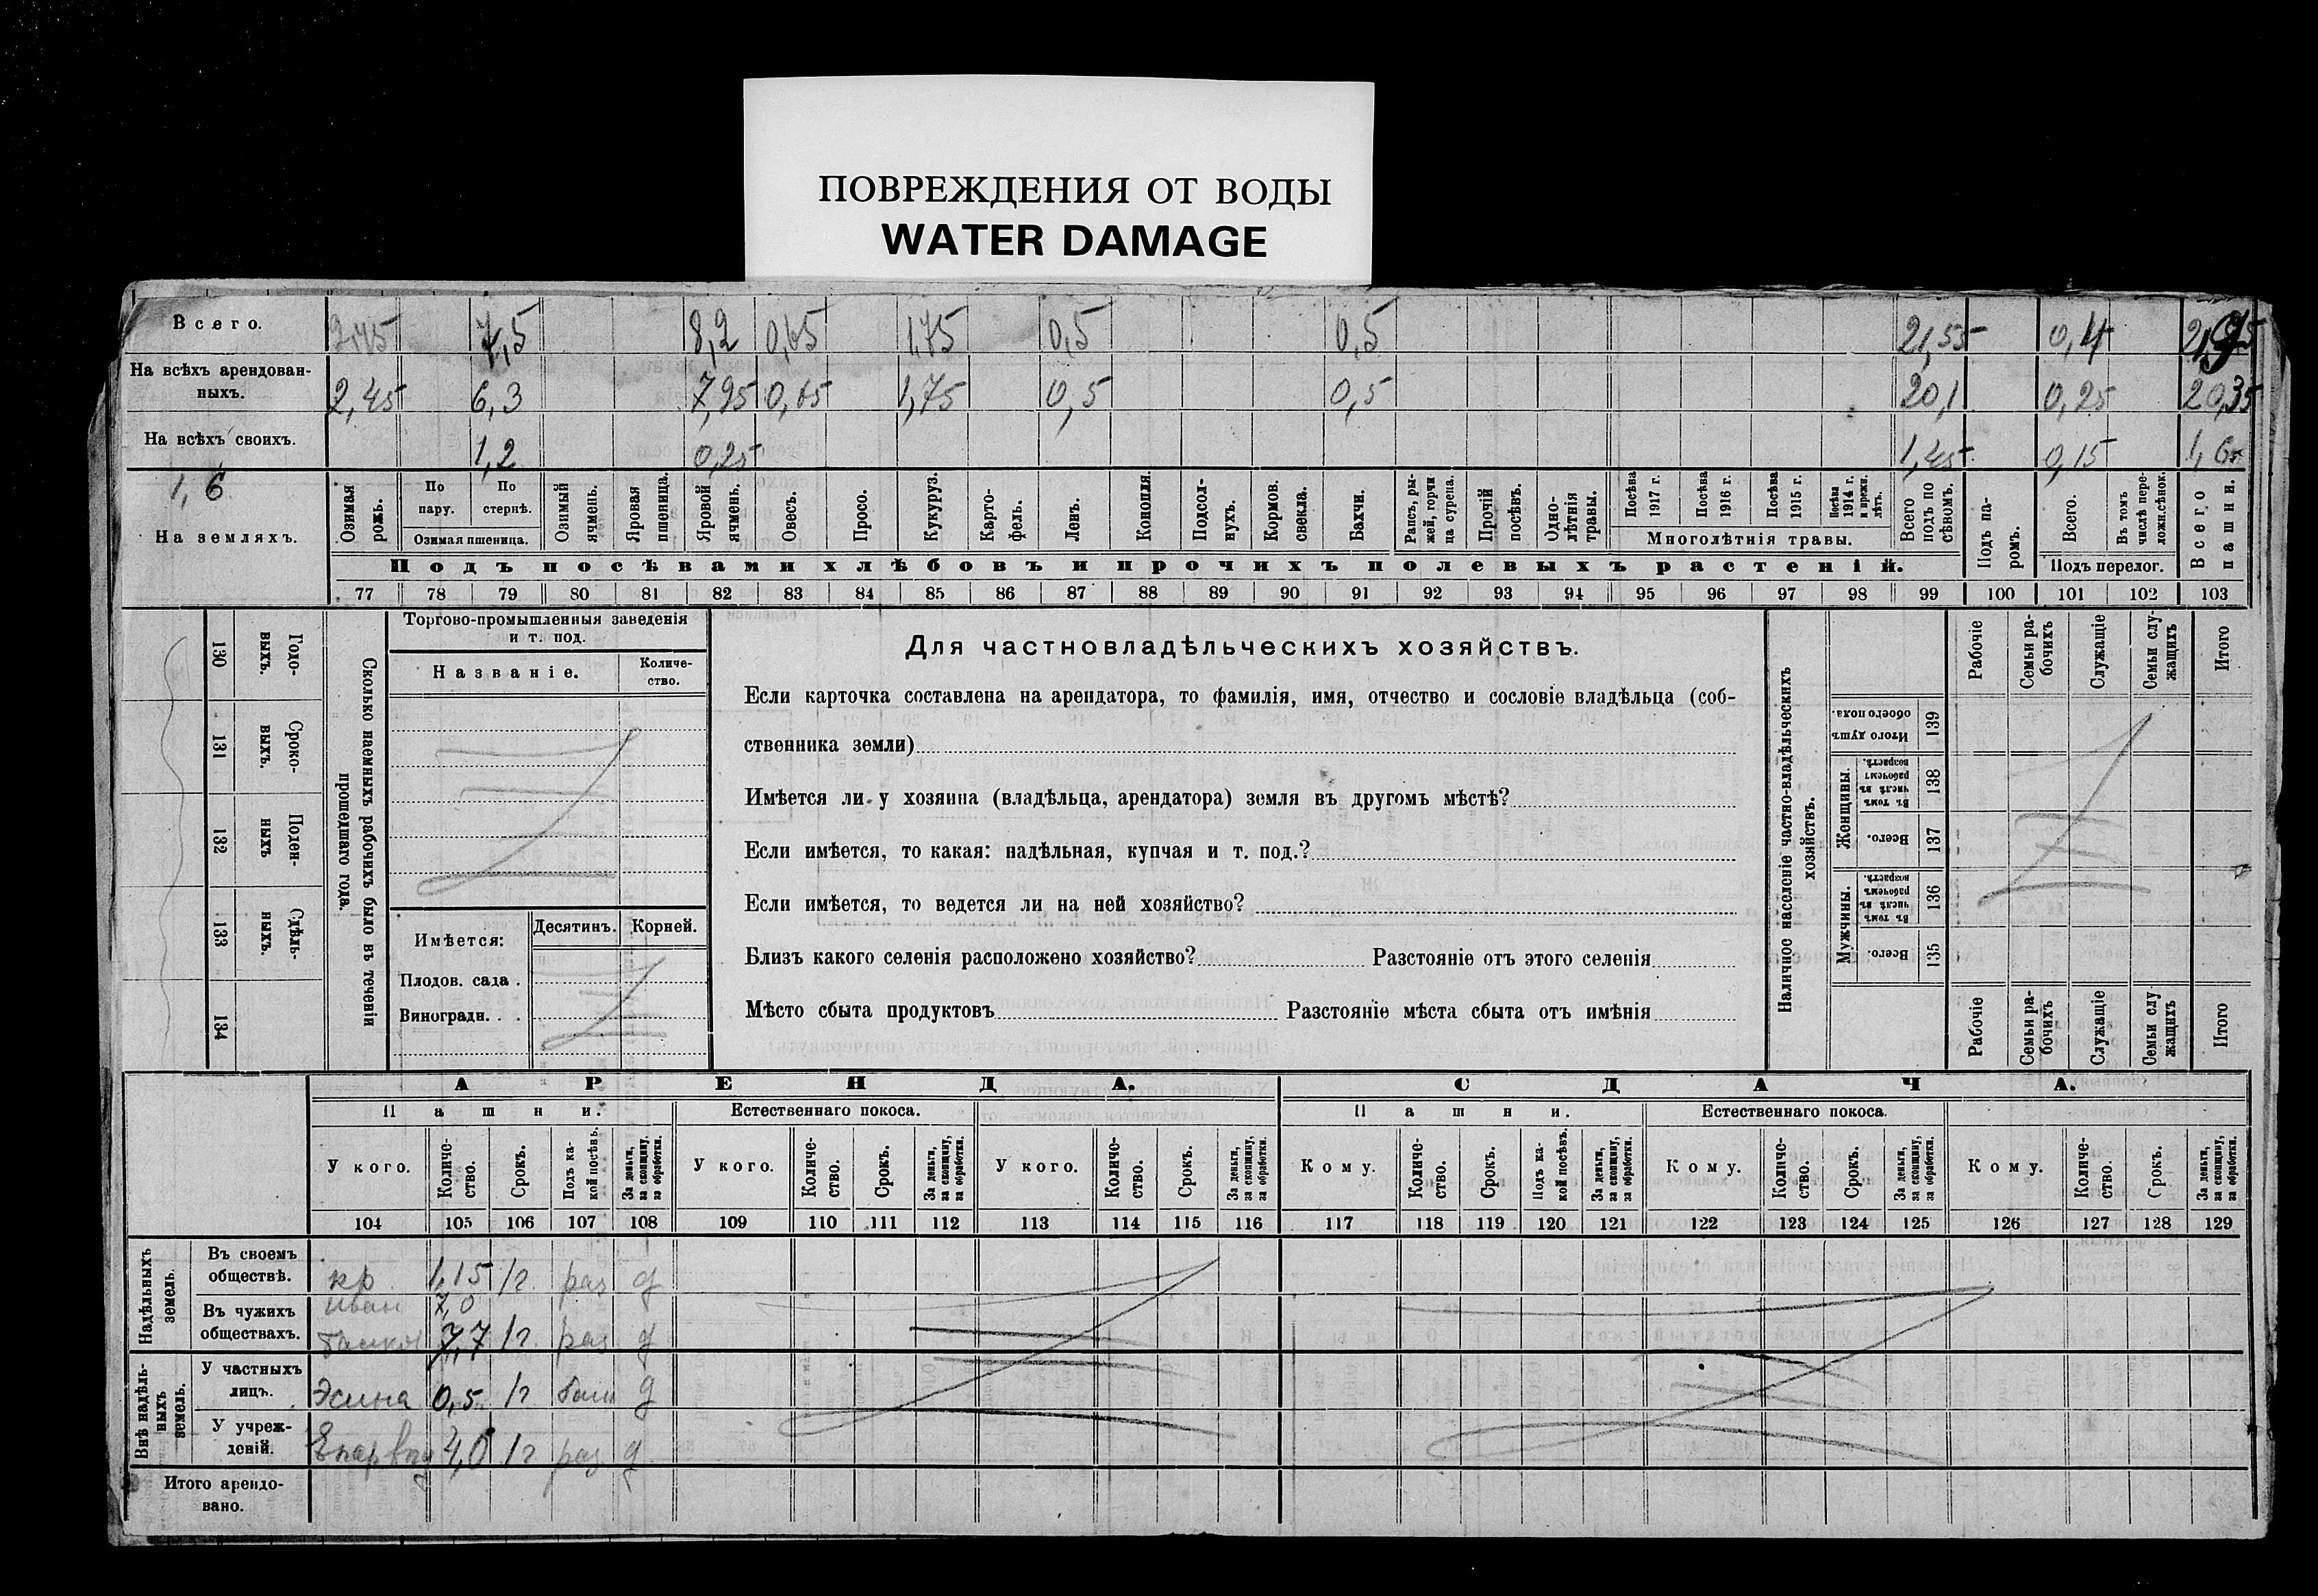 ПОВРЕЖДЕНИЯ ОТ ВОДЫ
WATER DAMAGE
Всего. 2,45 7,5 8,2 0,65 1,75 0,5 0,5 21,55 0,4
На всѣхъ арендован-
ныхъ. 2,45 6,3 7,95 0,65 1,75 0,5 0,5 20,1 0,25 20,35
На всѣхъ своихъ. 1,2 0,25 1,45 0,15 1,6
1,6
На земляхъ.
Озимая рожь.
По пару.
По стернѣ.
Озимая пшеница.
Озимый ячмень.
Яровая пшеница.
Яровой ячмень.
Овесъ.
Просо.
Кукуруз.
Карто-
фель.
Ленъ.
Конопля.
Подсол-
нухъ.
Кормов.
свекла.
Бахчи.
Рапсъ, ры-
жей, горчи
ца сурепа.
Прочій
посѣвъ.
Одно-
лѣтнія
травы.
Посѣва
1917 г.
Посѣва
1916 г.
Посѣва
1915 г.
Посѣва
1914 г.
и прежн.
лѣтъ.
Многолѣтнія травы.
Всего
подъ по
сѣвомъ.
Подъ па-
ромъ.
Всего.
Въ томъ
числѣ пере-
ложн.сѣнок.
Подъ перелог.
Всего
пашни.
Подъ посѣвами хлѣбовъ и прочихъ полевыхъ растеній.
77 78 79 80 81 82 83 84 85 86 87 88 89 90 91 92 93 94 95 96 97 98 99 100 101 102 103
130 Годо-
выхъ.
131 Сроко-
выхъ.
132 Поден-
ныхъ
133 Сдѣль-
ныхъ.
134
Сколько наемныхъ рабочихъ было въ теченіи
прошедшаго года.
Торгово-промышленныя заведенія
и т. под.
Названіе.
Количе-
ство.
Имѣется:
Десятинъ.
Корней.
Плодов. сада .
Виноградн. . .
Для частновладѣльческихъ хозяйствъ.
Если карточка составлена на арендатора, то фамилія, имя, отчество и сословіе владѣльца (соб-
ственника земли)
Имѣется ли у хозяина (владѣльца, арендатора) земля въ другомъ мѣстѣ?
Если имѣется, то какая: надѣльная, купчая и т. под.?
Если имѣется, то ведется ли на ней хозяйство?
Близъ какого селенія расположено хозяйство? Разстояніе отъ этого селенія
Мѣсто сбыта продуктовъ Разстояніе мѣста сбыта отъ имѣнія
Наличное населеніе частно-владѣльческихъ
хозяйствъ.
Рабочіе
Семьи ра-
бочихъ
Служащіе
Семьи слу-
жащихъ
Итого
Итого душъ
обоего пола.
139
Женщины.
Въ томъ
числѣ въ
рабочемъ
возрастѣ.
138
Всего.
137
Мужчины.
Въ томъ
числѣ въ
рабочемъ
возрастѣ.
136
Всего.
135
Рабочіе
Семьи ра-
бочихъ
Служащіе
Семьи слу
жащихъ
Итого
АРЕНДА. СДАЧА.
Пашни. Естественнаго покоса. Пашни. Естественнаго покоса.
У кого.
Количе-
ство.
Срокъ.
Подъ ка-
кой посѣвъ.
За деньги,
за скопщину,
за обработки.
У кого.
Количе-
ство.
Срокъ.
За деньги,
за скопщину,
за обработки.
У кого.
Количе-
ство.
Срокъ.
За деньги,
за скопщину,
за обработки.
Кому.
Количе-
ство.
Срокъ.
Подъ ка-
кой посѣвъ.
За деньги,
за скопщину,
за обработки.
Кому.
Количе-
ство.
Срокъ.
За деньги,
за скопщину,
за обработки.
Кому.
Количе-
ство.
Срокъ.
За деньги,
за скопщину,
за обработки.
104 105 106 107 108 109 110 111 112 113 114 115 116 117 118 119 120 121 122 123 124 125 126 127 128 129
Надѣльныхъ
земель.
Въ своемъ
обществѣ. кр 1,15 1г. раз д
Въ чужихъ
обществахъ. Иван 7,0
7,7 1г. раз д
Внѣ надѣль-
ныхъ
земель.
У частныхъ
лицъ. 0,5 1г д
У учреж-
деній. 4,0 1г раз д
Итого арендо-
вано.